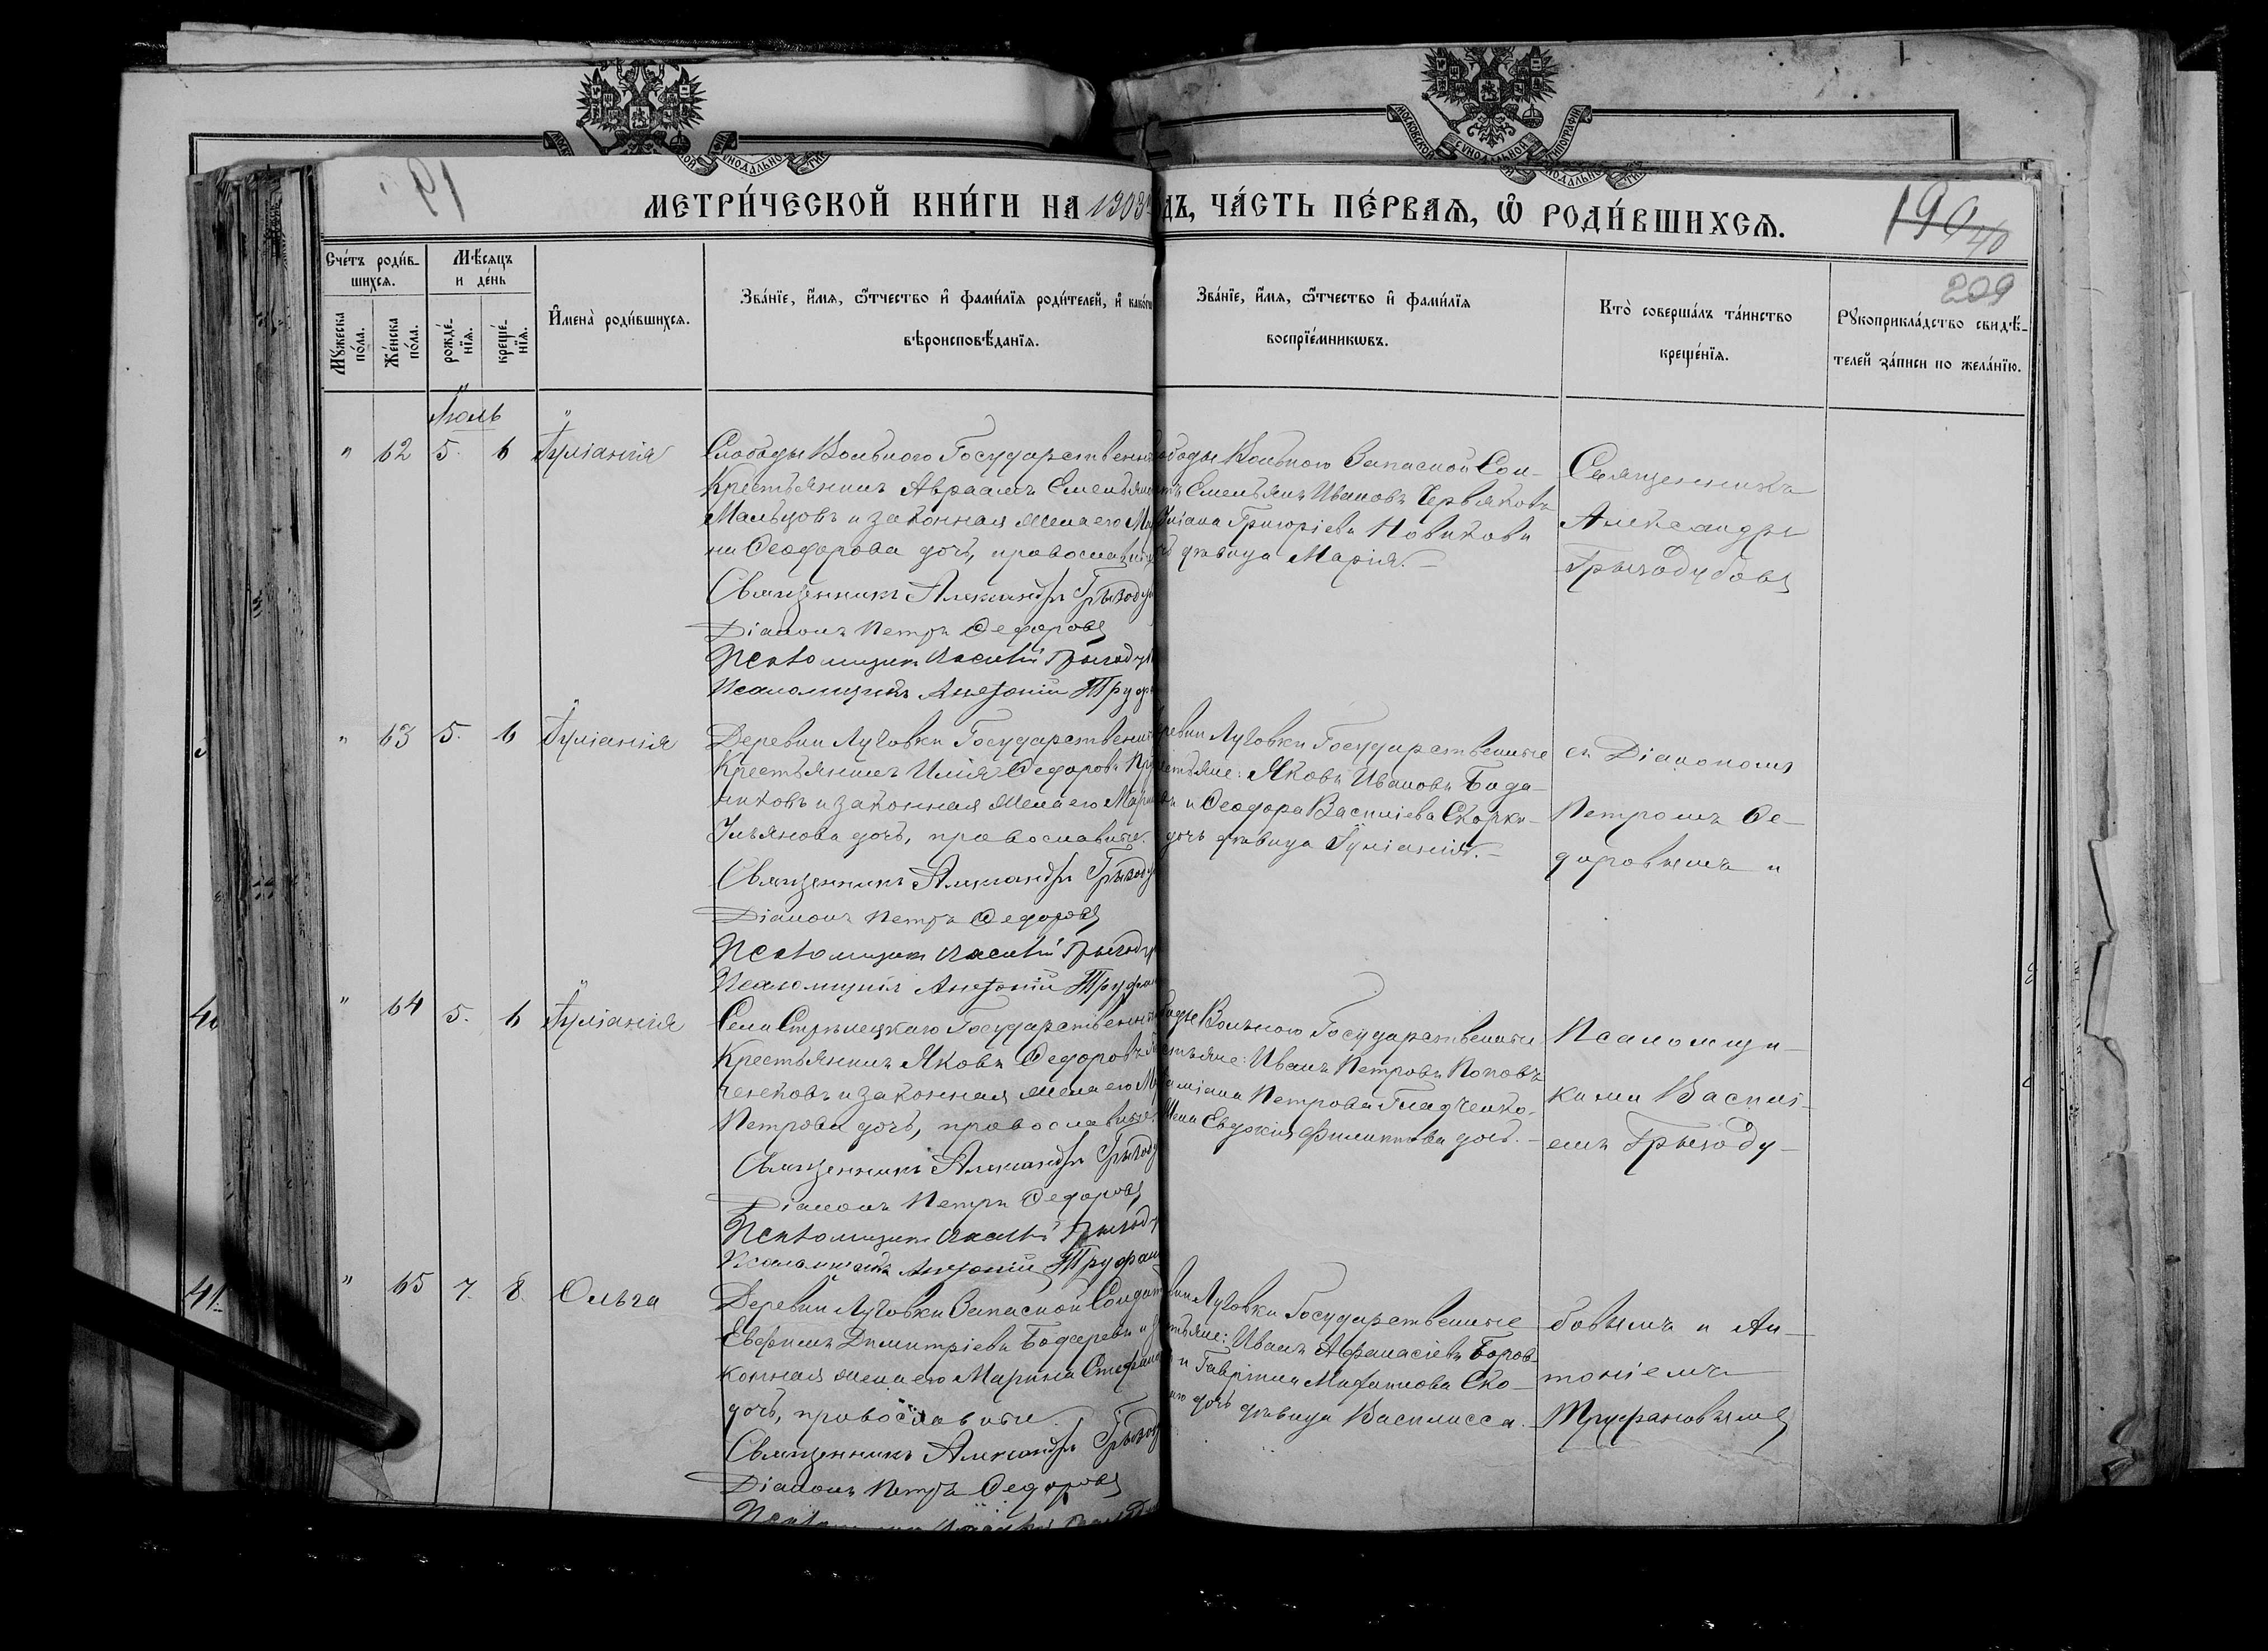 МЕТРИ́ЧЕСКОЙ КНИ́ГИ НА 1903 ДЪ, ЧА́СТЬ ПЕ́РВАѦ, Ѡ РОДИ́ВШИХСѦ.
190 40
209
Сче́тъ роди́в-
шихсѧ.
Мѣ́сѧцъ
и де́нь
Мꙋ́жеска
по́ла.
Же́нска
по́ла.
рожде́-
нїѧ.
креще́-
нїѧ.
И҆мена̀ роди́вшихсѧ.
Зва́нїе, и҆́мѧ, ѻ҆́тчество и҆ фами́лїѧ роди́телей, и҆ како́гѡ
вѣроисповѣ́данїѧ.
Зва́нїе, и҆́мѧ, ѻ҆́тчество и҆ фами́лїѧ
воспрїе́мникѡвъ.
Кто̀ соверша́лъ та́инство
креще́нїѧ.
Рꙋкоприкла́дство свидѣ́-
телей за́писи по жела́нїю.
Іюль
" 62 5. 6 Іуліанія
Слободы Вольнаго Государственн
Крестьянинъ Авраамъ Емельян
Мальцовъ и законная жена его Ма
на Ѳеодорова дочь, православн
Священникъ Александръ Грызоду
Діаконъ Петръ Ѳедоровъ
Псаломщикъ Василій Грызоду
Псаломщикъ Антоній Труф
ободы Вольнаго Запасной Сол-
тъ Емельянъ Ивановъ Червяковъ
Уліана Григоріева Новикова
дѣвица Марія.-
Священникъ
Александръ
Грызодубовъ
" 63 5. 6 Іуліанія
Деревни Луговки Государственн
Крестьянинъ Илія Ѳедоровъ Пр
никовъ и законная жена его Мар
Ульянова дочь, православные.
Священникъ Александръ Грызоду
Діаконъ Петръ Ѳедоровъ
Псаломщикъ Василій Грызоду
Псаломщикъ Антоній Труфан
ревни Луговки Государственные
стьяне: Яковъ Ивановъ Бода-
и Ѳеодора Василіева Скорки-
дочь дѣвица Іуліанія.-
съ Діакономъ
Петромъ Ѳе-
доровымъ и
" 64 5. 6 Іуліанія
Села Стрѣлецкаго Государственн
Крестьянинъ Яковъ Ѳедоровъ
ченковъ и законная жена его М
Петрова дочь, православные.
Священникъ Александръ Грызоду
Діаконъ Петръ Ѳедоровъ
Псаломщикъ Василій Грызоду
Псаломщикъ Антоній Труфан
боды Вольнаго Государственные
стьяне: Иванъ Петровъ Поповъ
Даміана Петрова Гладченко-
жена Евдокія Филиппова дочь.-
Псаломщи-
ками Василі-
емъ Грызоду-
" 65 7. 8. Ольга
Деревни Луговки Запасной Солдат
Евфимъ Димитріевъ Бодаревъ и за
конная жена его Марина Стефан
дочь, православные.
Священникъ Александръ Грызоду
Діаконъ Петръ Ѳедоровъ
вни Луговки Государственные
стьяне: Иванъ Аѳанасіевъ Боров-
и Гавріила Скo-
дочь дѣвица Василисса.
бовымъ и Ан-
тоніемъ
Труфановымъ
40
41